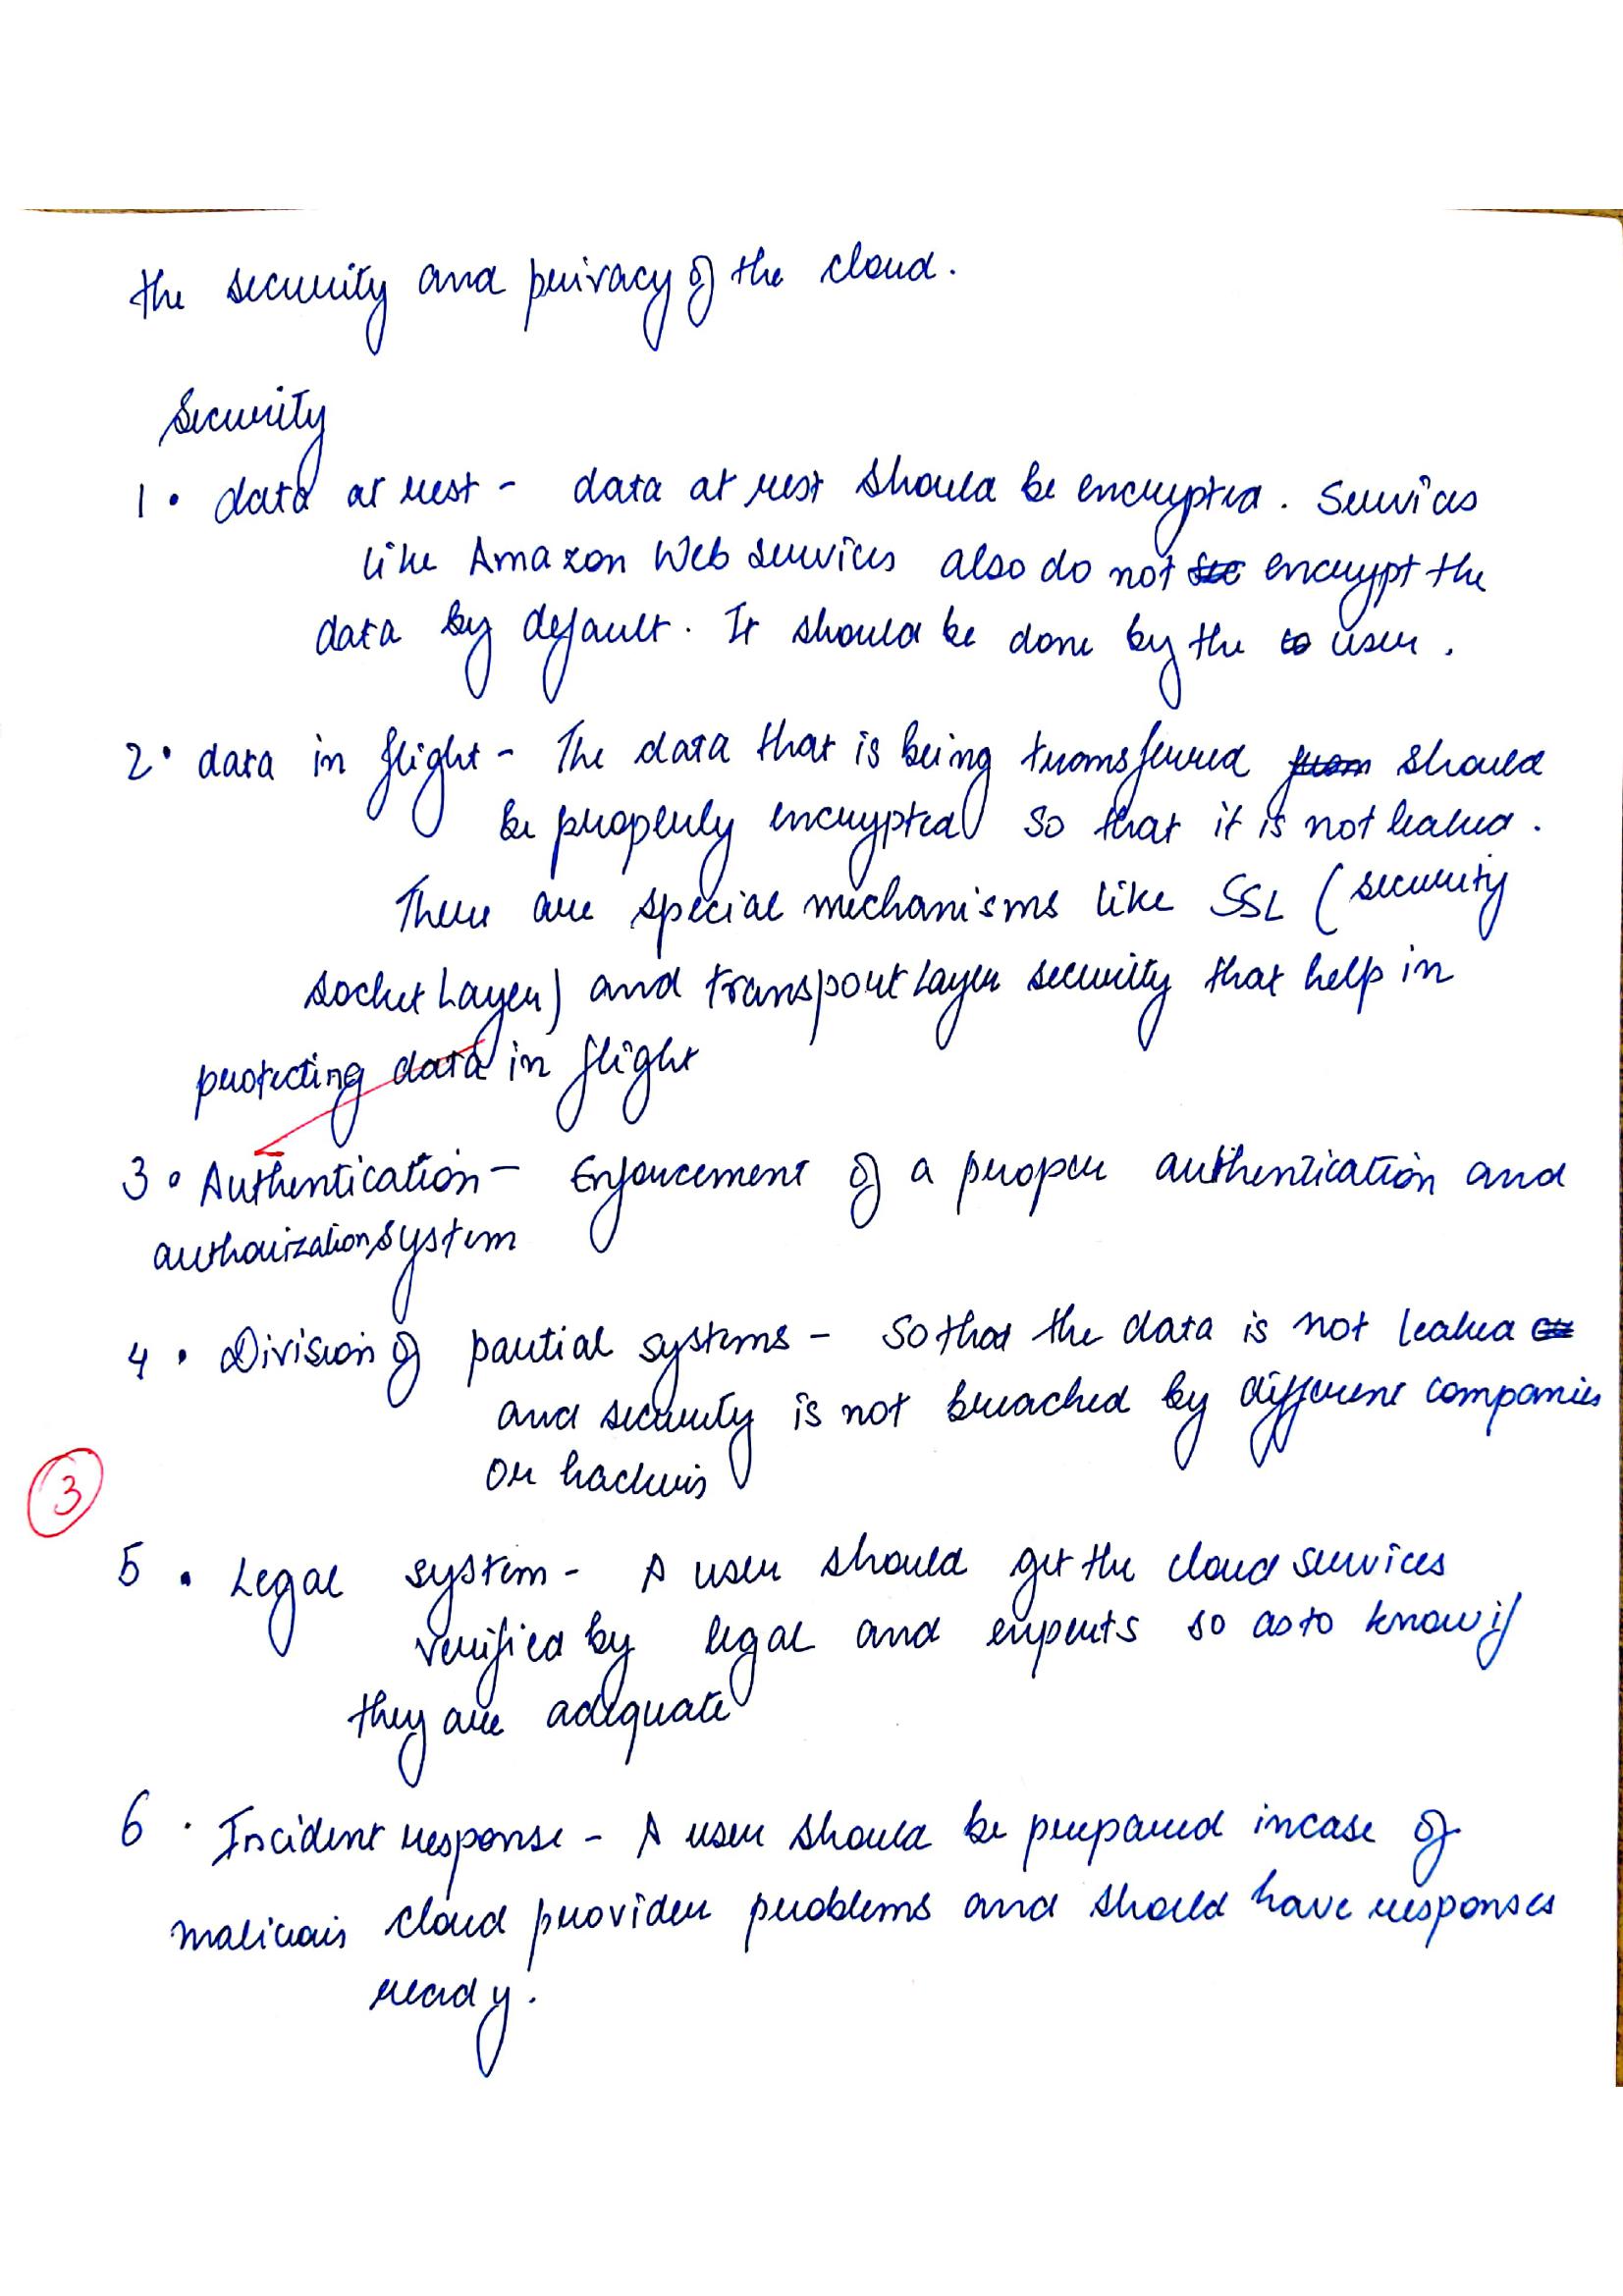 the security and privacy of the cloud.
Security
1. data at rest - data at rest should be encrypted. Services
like Amazon Web services also do not encrypt the
data by default. It should be done by the user.
2. data in flight - The data that is being transferred should
be properly encrypted so that it is not leaked.
There are special mechanisms like SSL (security
socket Layer) and transport Layer security that help in
protecting data in flight
3. Authentication - Enforcement of a proper authentication and
authorization system
4. Division of partial systems - So that the data is not leaked
and security is not breached by different companies
3
or hackers
5. Legal system - A user should get the cloud services
verified by legal and experts so as to know if
they are adequate
6. Incident response - A user should be prepared incase of
malicious cloud provider problems and should have responses
ready.